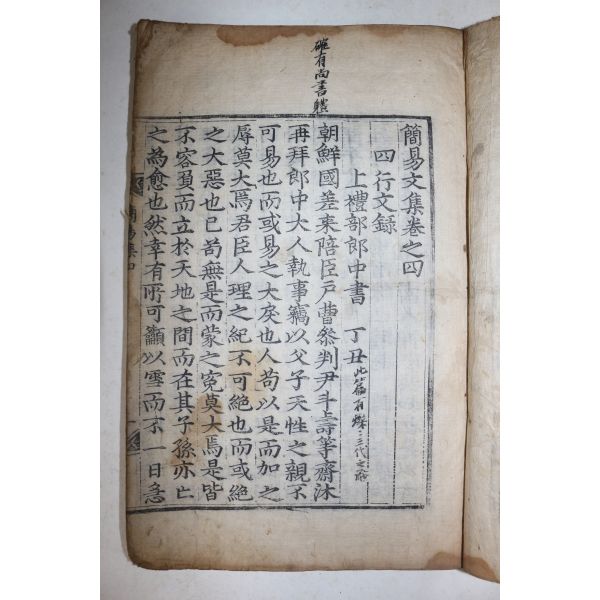 確有尚書體
簡易文集卷之四
四行文錄
上禮部郎中書 丁丑 此篇有 三代之
朝鮮國差來陪臣戶曹叅判尹斗壽等齋沐
再拜郎中大人執事竊以父子天性之親不
可易也而或易之大戾也人苟以是而加之
辱莫大焉君臣人理之紀不可絶也而或絶
之大惡也已苟無是而蒙之寃莫大焉是皆
不容覆而立於天地之間而在其子孫亦亡
之為愈也然幸有所可籲以雪而不一日急
簡易集四